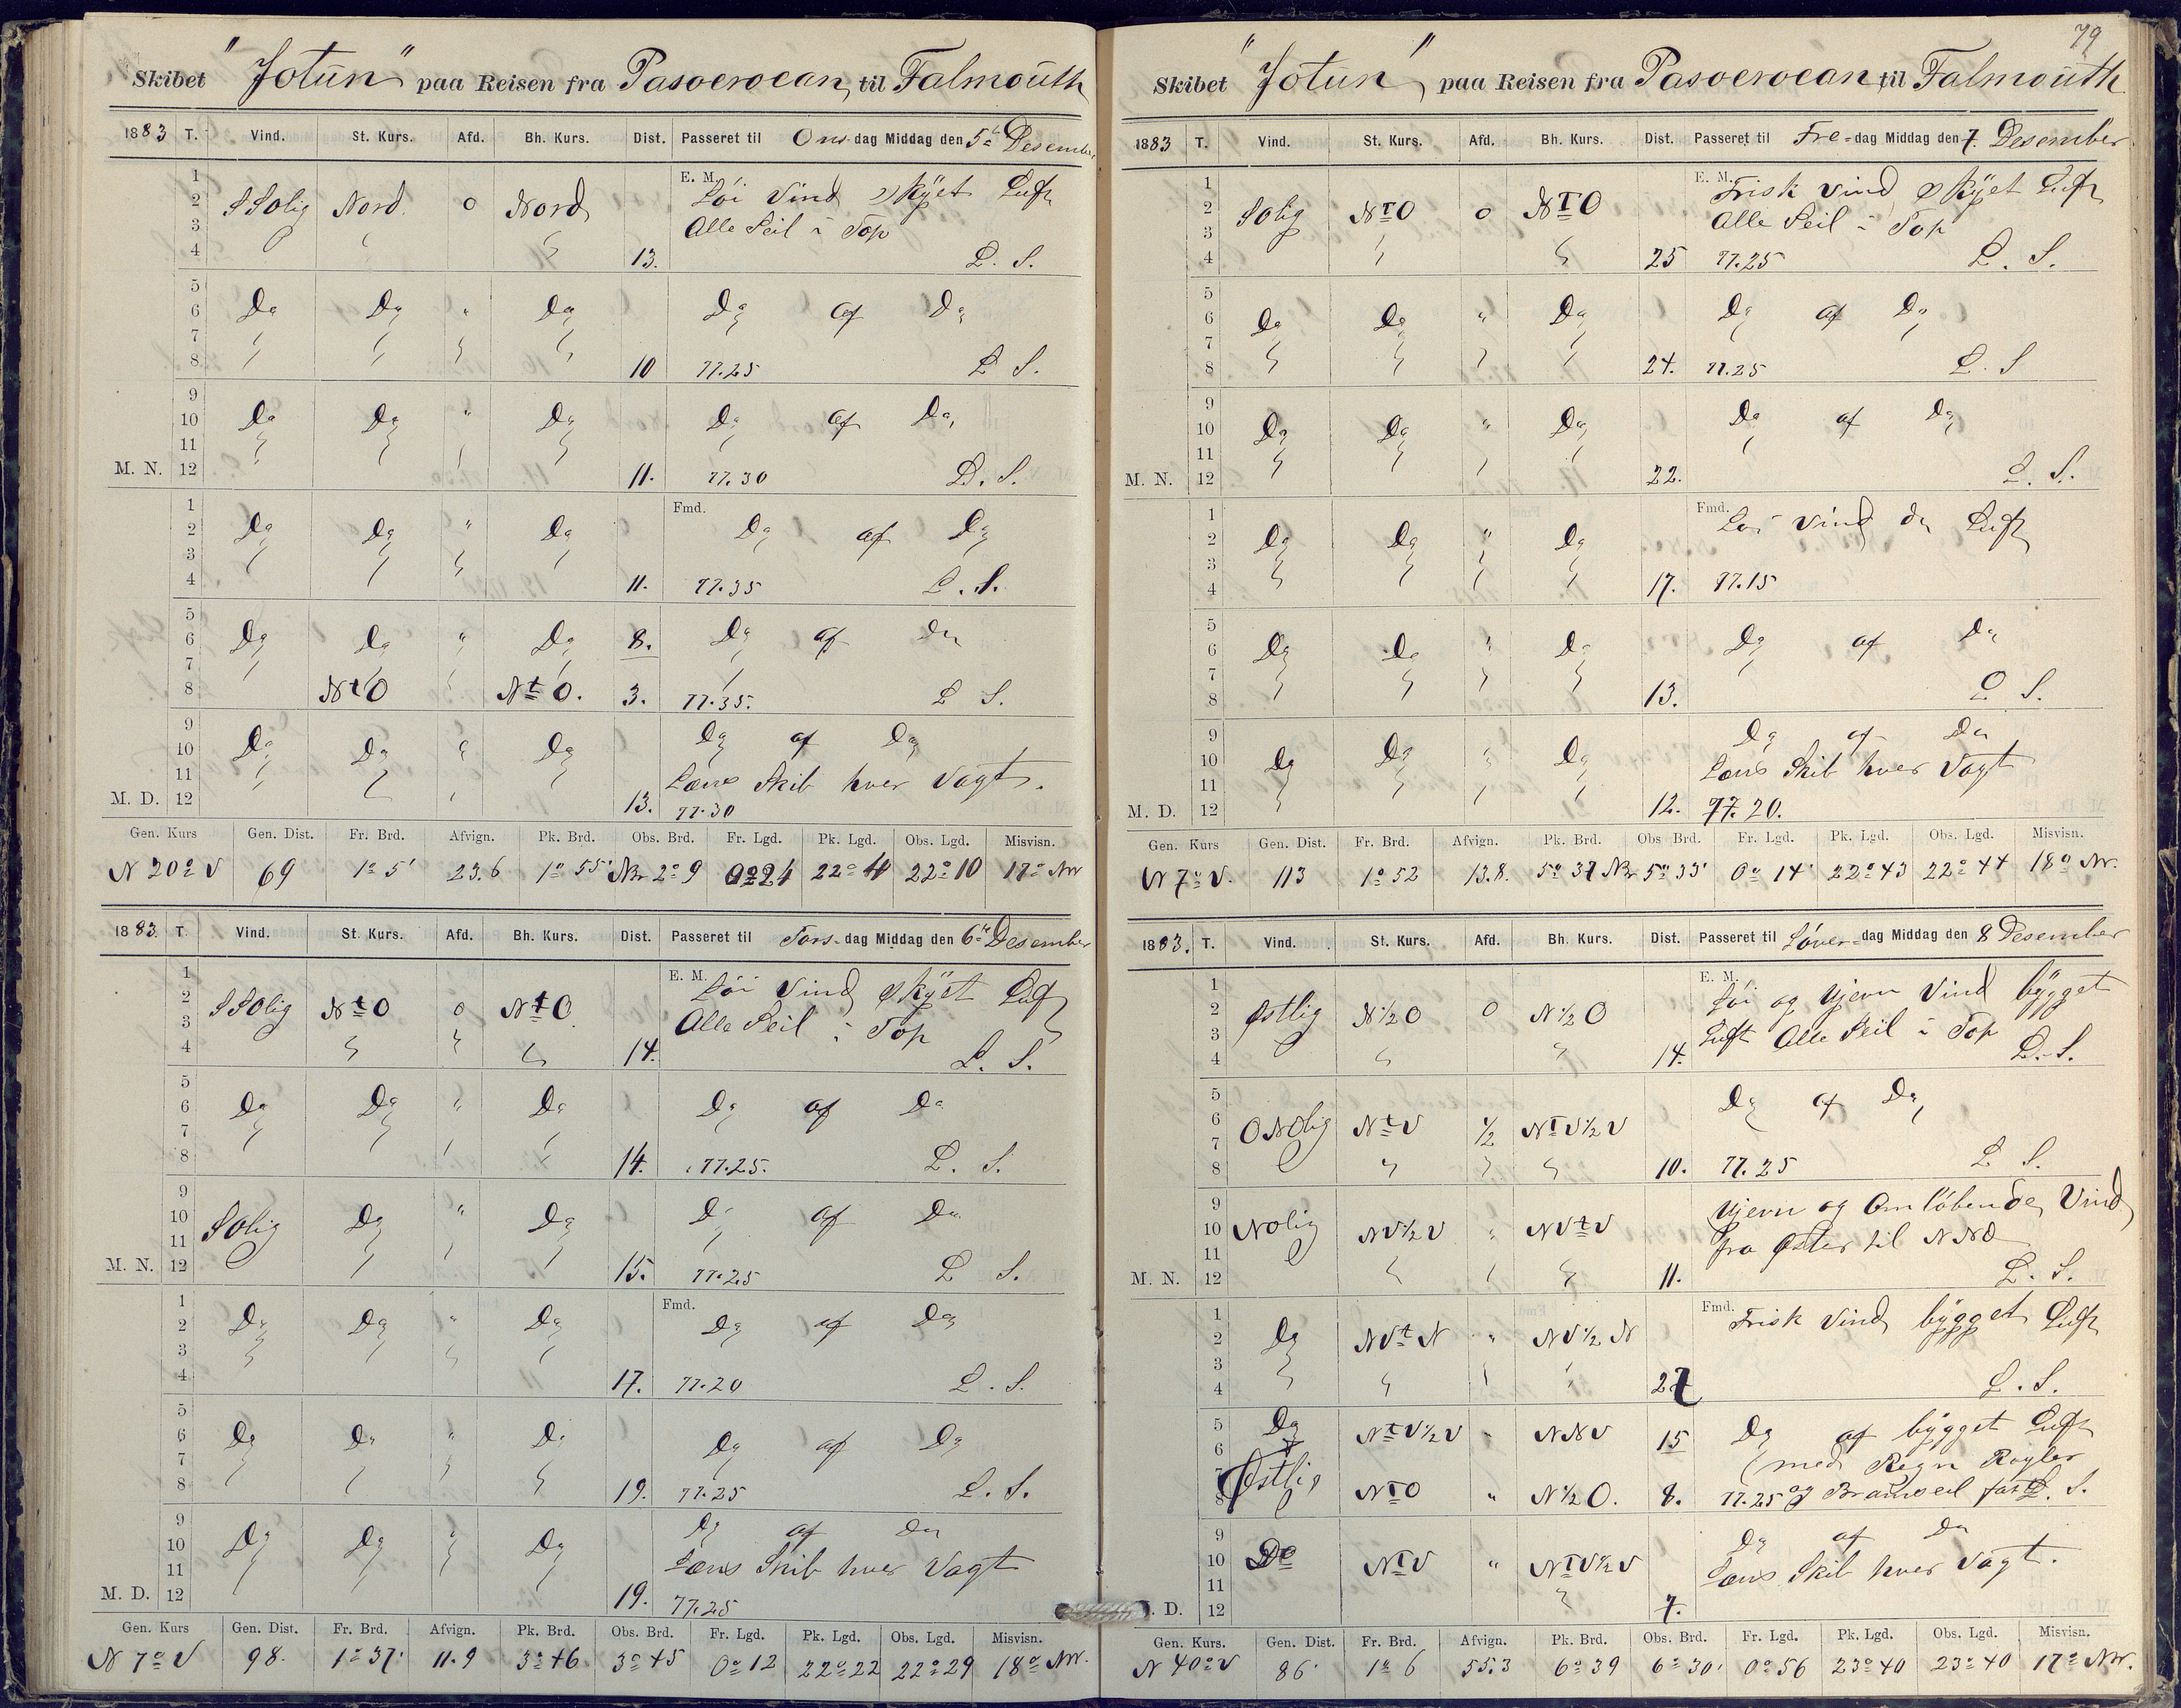 79
Skibet "Jotun" paa Reisen fra Pasoeroean, til Falmouth
1883 T. Vind. St. Kurs. Afd. Bh. Kurs. Dist. Passeret til Ons-dag Middag den 5te Desember
1
2 SSolig Nord. 0 Nord E. M. Löi Vind skÿet Luft
3 Alle Seil i Top
4 13. L. S.
5
6 Do Do " Do Do af Do
7
8 10 77.25 L S.
9
10 Do Do " Do Do af Do
11
M. N. 12 11. 77.30 L. S.
1 Fmd.
2 Do Do " Do Do af Do
3
4 11. 77.35 L. S.
5
6 Do Do " Do 8. Do af Do
7
8 NtO NtO. 3. 77.35. L S.
9
10 Do Do Do Do af Do
11 Læns Skib hver Vagt.
M. D. 12 13. 77.30
Gen. Kurs Gen. Dist. Fr. Brd. Afvign. Pk. Brd. Obs. Brd. Fr. Lgd. Pk. Lgd. Obs. Lgd. Misvisn.
N 20° V 69 1° 5' 23.6 1° 55' Nbr 2° 9 0° 24 22° 4 22° 10 17° NV
1883. T. Vind. St. Kurs. Afd. Bh. Kurs. Dist. Passeret til Tors-dag Middag den 6te Desember
1
2 SSolig NtO 0 NtO E. M. Löi Vind skÿet Luft
3 Alle Seil i Top
4 14. L. S.
5
6 Do Do " Do Do af Do
7
8 14. 77.25. L. S.
9
10 Solig Do " Do Do af Do
11
M. N. 12 15. 77.25 L S.
1 Fmd.
2 Do Do " Do Do af Do
3
4 17. 77.20 L. S.
5
6 Do Do " Do Do af Do
7
8 19. 77.25 L. S.
9
10 Do Do " Do Do af Do
11 Læns Skib hver Vagt
M. D. 12 19. 77.25
Gen. Kurs Gen. Dist. Fr. Brd. Afvign. Pk. Brd. Obs. Brd. Fr. Lgd. Pk. Lgd. Obs. Lgd. Misvisn.
N 7° V 98. 1° 37' 11.9 3° 46 3° 45 0° 12 22° 22 22° 29 18° NV.
Skibet "Jotun" paa Reisen fra Pasoeroean til Falmouth
1883 T. Vind. St. Kurs. Afd. Bh. Kurs. Dist. Passeret til Fre-dag Middag den 7. Desember
1
2 Solig NTO 0 NTO E. M. Frisk Vind skÿet Luft
3 Alle Seil i Top
4 25 77.25 L. S.
5
6 Do Do " Do Do af Do
7
8 24. 77.25 L. S
9
10 Do Do " Do Do af Do
11
M. N. 12 22. L. S.
1 Fmd. Löi Vind do Luft
2 Do Do " Do
3
4 17. 77.15
5
6 Do Do " Do Do af Do
7
8 13. L S.
9
10 Do Do " Do Do af Do
11 Læns Skib hver Vagt
M. D. 12 12. 77.20.
Gen. Kurs Gen. Dist. Fr. Brd. Afvign. Pk. Brd. Obs Brd. Fr. Lgd. Pk. Lgd. Obs. Lgd. Misvisn.
N 7° V. 113 1° 52 13.8. 5° 37 Nbr 5° 33' 0° 14' 22° 43 22° 44 18° NV.
1883. T. Vind. St. Kurs. Afd. Bh. Kurs. Dist. Passeret til Löver-dag Middag den 8 Desember
1 E. M.
2 Østlig N½O 0 N½O Löi og Ujevn Vind bÿgget
3 Luft Alle Seil i Top
4 14. L. S.
5
6 ONOlig NtV ½ NTV½V Do af Do
7
8 10. 77.25 L S.
9
10 NOlig NV½V " NVtV Ujevn og Omlöbende Vind
11 fra Öster til NNO
M. N. 12 11. L. S.
1 Fmd. Frisk Vind bÿgget Luft
2 Do NVtN " NV½N
3
4 27 L. S.
5 Do NtV½V " NNV 15 Do af bÿgget Luft
6 med Regn Kogler
7 Østlig
8 NTO " N½O. 8. 77.25 og Bramseil fast L. S.
9
10 Do NTV " NTV½V Do af Do
11 Læns Skib hver Vagt.
. D. 12 7.
Gen. Kurs. Gen. Dist. Fr. Brd. Afvign. Pk. Brd. Obs. Brd. Fr. Lgd. Pk. Lgd. Obs. Lgd. Misvisn.
N 40° V 86' 1° 6 55.3 6° 39 6° 30' 0° 56 23° 40 23° 40 17° NV.